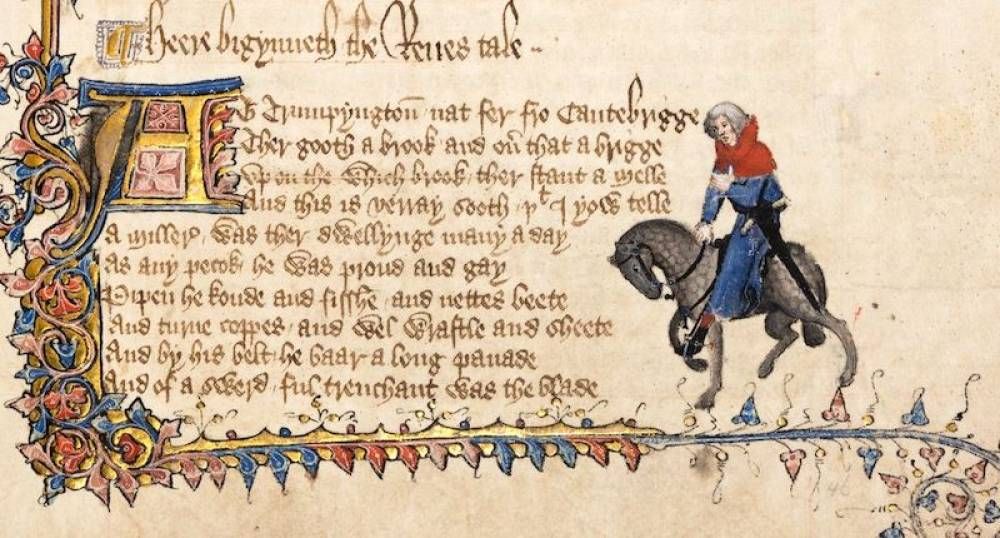 Heere bigynneth the Reues tale
At Trumpyngton nat fer fro Cantebrigge
Ther gooth a brook and ouer that a brigge
Vp on the which brook ther stant a Melle
And this is verray sooth þt I yow telle
A Millere was ther dwellynge many a day
As any pecok he was proud and gay
Pipen he koude and fisshe and nettes beete
And turne coppes and wel wrastle and sheete
And by his belt he baar a long panade
And of a swerd ful trenchant was the blade